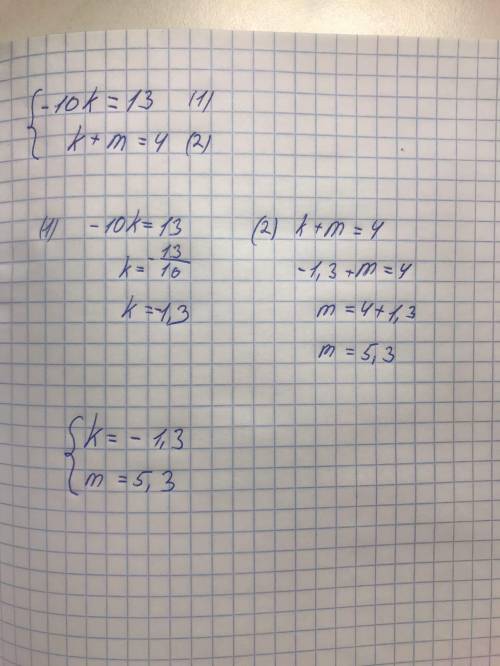 { -10k = 13 (1)
k + m = 4 (2)
(1) -10k = 13
k = - 13/10
k = -1,3
(2) k + m = 4
-1,3 + m = 4
m = 4 + 1,3
m = 5,3
{ k = - 1,3
m = 5,3